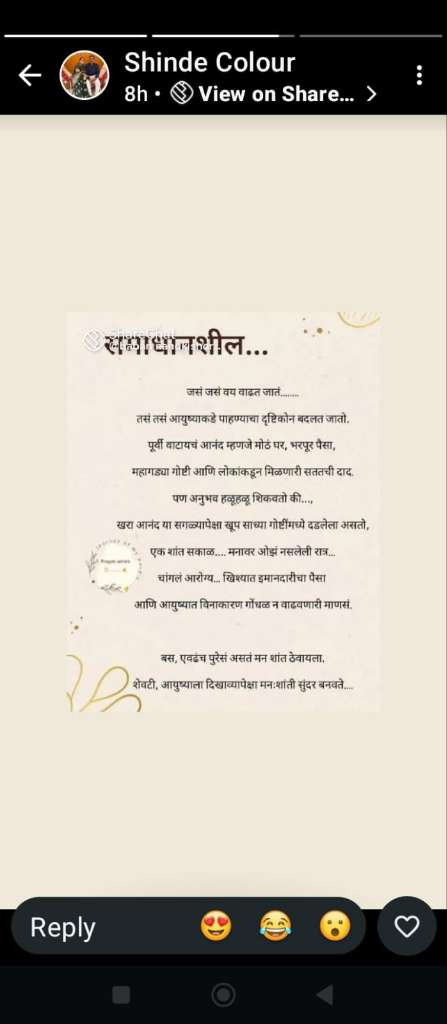 Shinde Colour
8h • View on Share...
ShareChat
समाधानशील...
जसं जसं वय वाढत जातं........
तसं तसं आयुष्याकडे पाहण्याचा दृष्टिकोन बदलत जातो.
पूर्वी वाटायचं आनंद म्हणजे मोठं घर, भरपूर पैसा,
महागड्या गोष्टी आणि लोकांकडून मिळणारी सततची दाद.
पण अनुभव हळूहळू शिकवतो की...,
खरा आनंद या सगळ्यापेक्षा खूप साध्या गोष्टींमध्ये दडलेला असतो,
एक शांत सकाळ.... मनावर ओझं नसलेली रात्र...
चांगलं आरोग्य... खिश्यात इमानदारीचा पैसा
आणि आयुष्यात विनाकारण गोंधळ न वाढवणारी माणसं.
बस, एवढंच पुरेसं असतं मन शांत ठेवायला.
शेवटी, आयुष्याला दिखाव्यापेक्षा मनःशांती सुंदर बनवते....
Reply